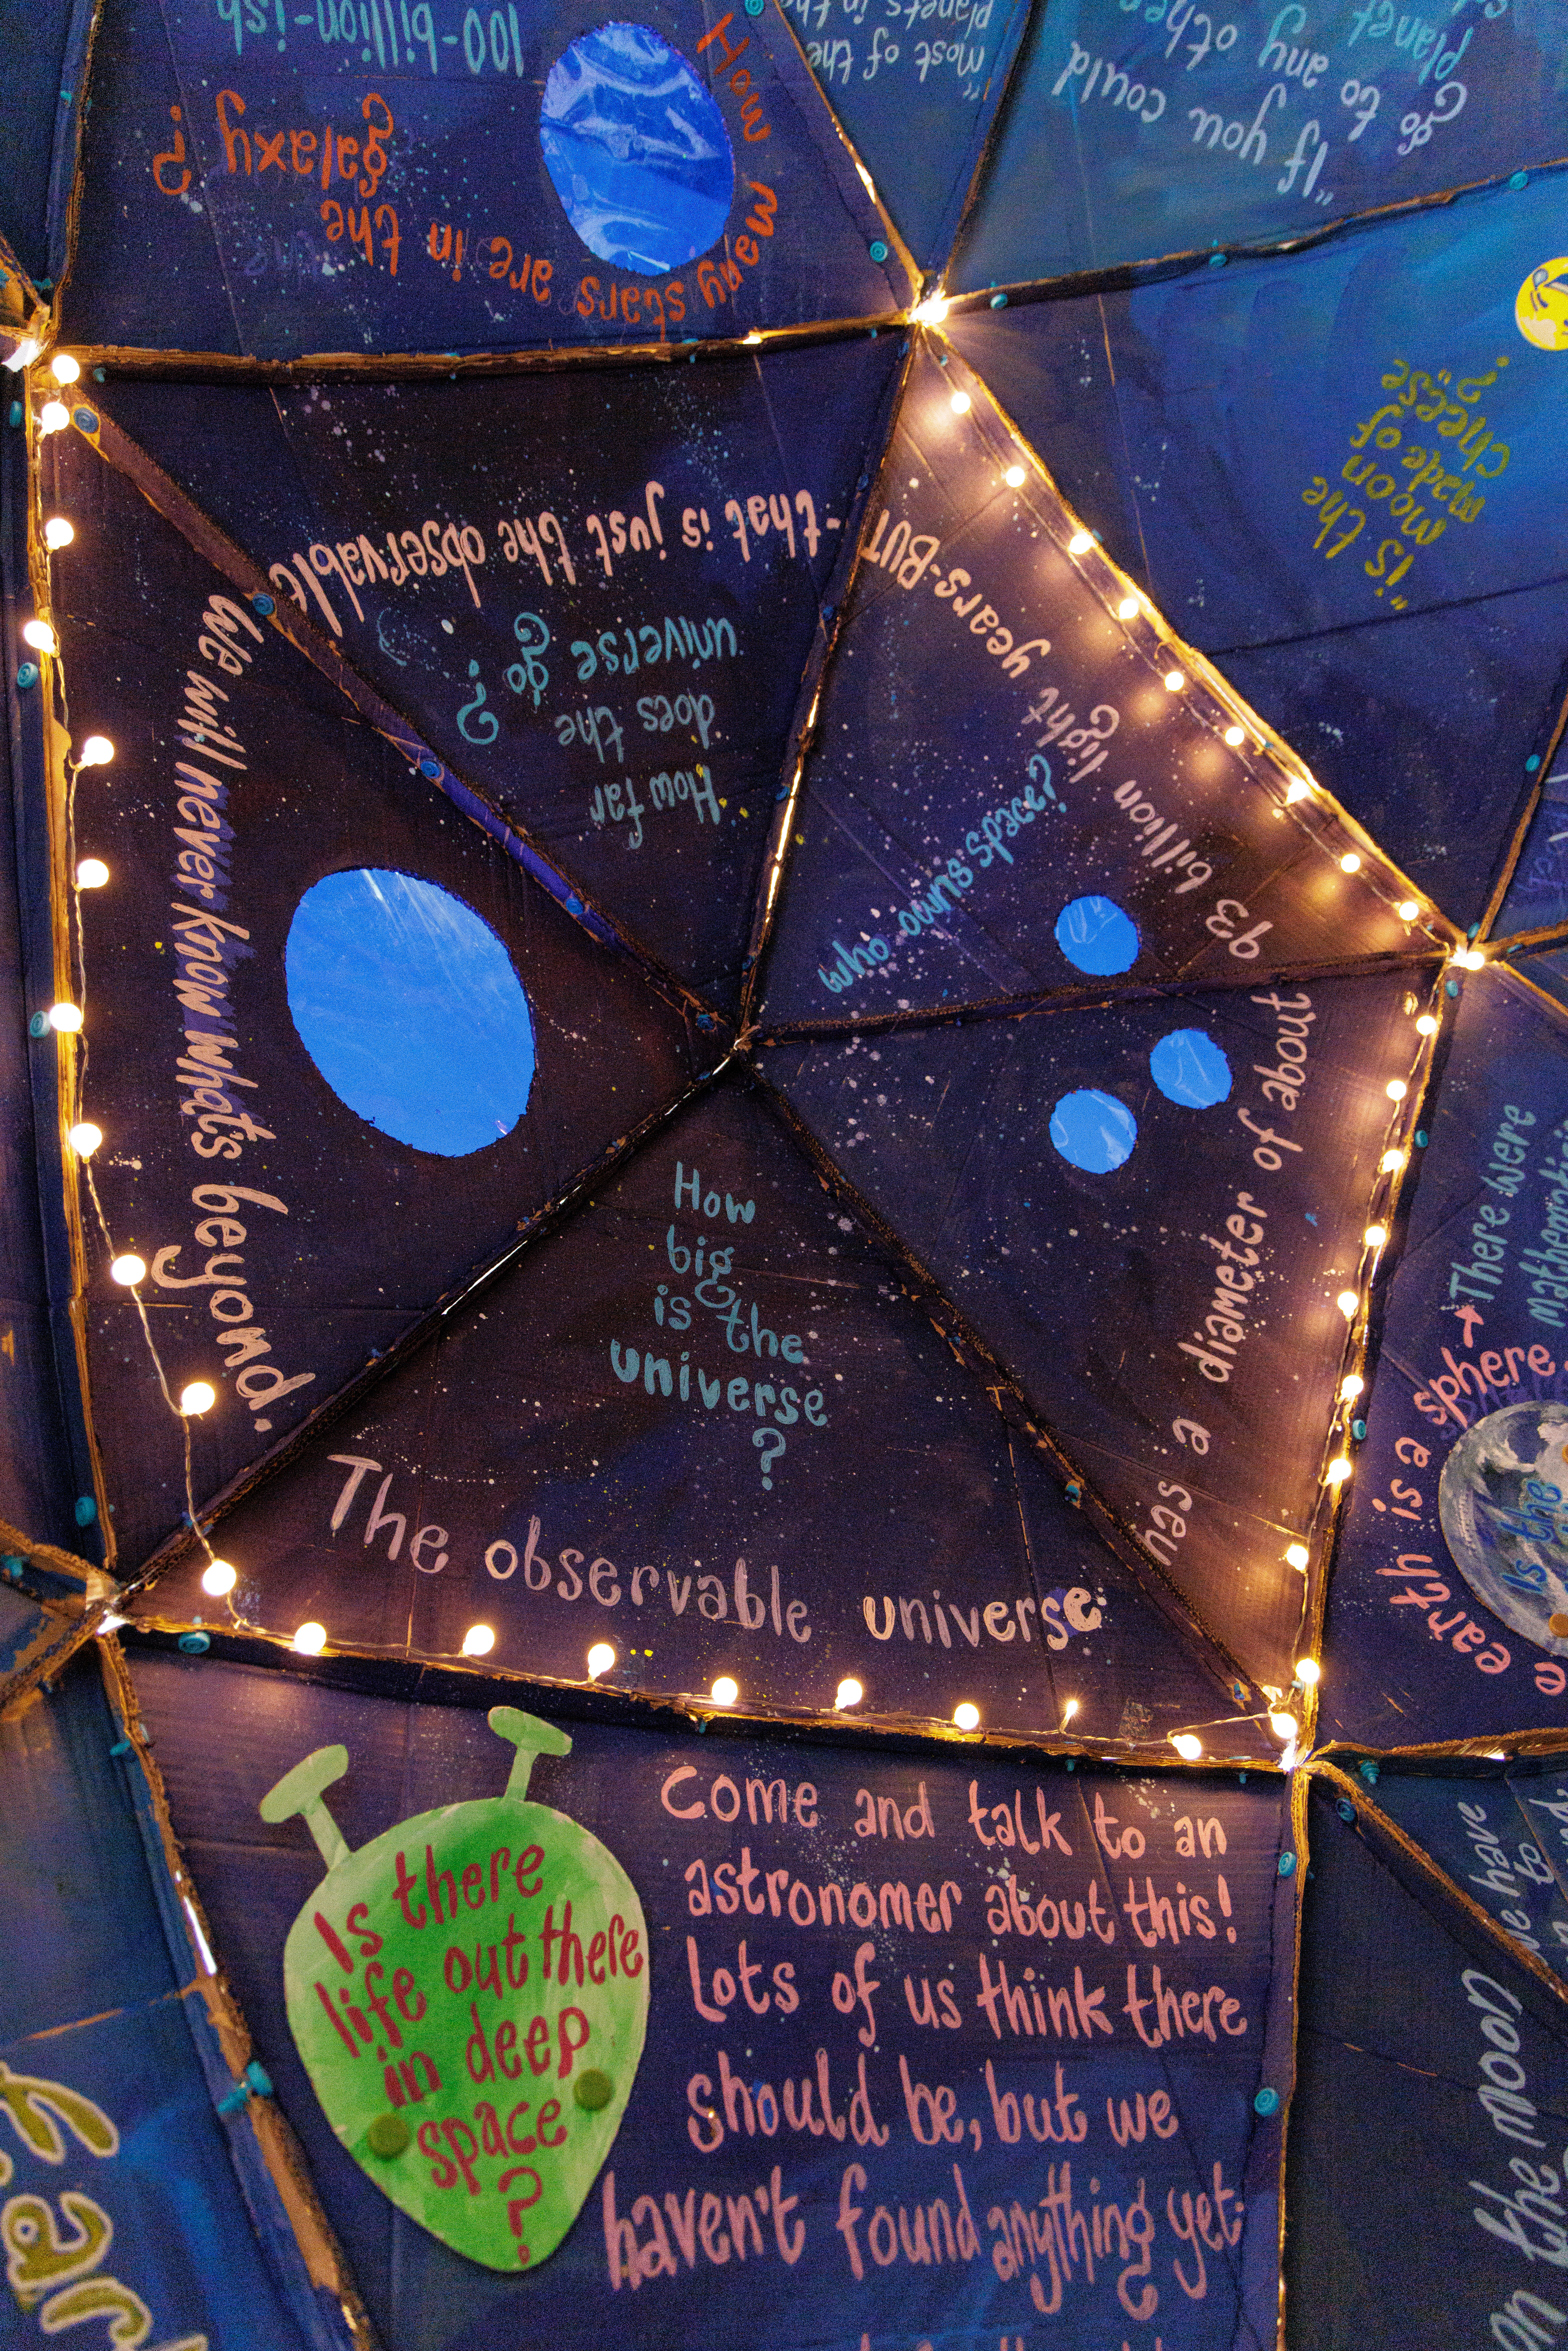 How
many stars are in the
galaxy?
100-billion-ish
"Most of the
planets in the
"If you could
go to any other
planet
"is the
moon
made of
cheese"?
How
big
is the
universe
?
The observable universe
has a diameter of about
93 billion light years-BUT
-that is just the observable
we will never know what's beyond.
who owns space?
How far
does the
universe go?
earth is a sphere
There were
Is the
Is there
life out there
in deep
space
?
Come and talk to an
astronomer about this!
Lots of us think there
should be, but we
haven't found anything yet.
we have
to
the moon